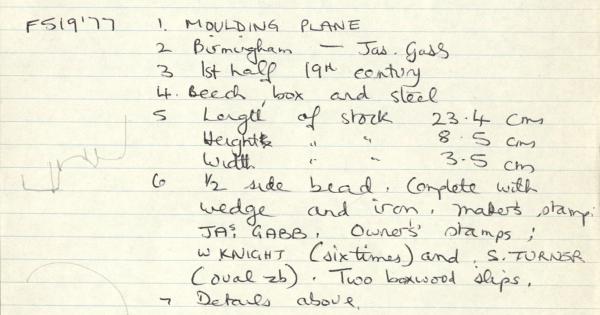 FS19'77 1. MOULDING PLANE
2 Birmingham — Jas. Gabb
3 1st half 19th century
4. Beech, box and steel
5 Length of stock 23.4 cms
Height " " 8.5 cms
Width " " 3.5 cm
6 1/2 side bead. Complete with
wedge and iron. maker's stamp:
JAs GABB. Owners' stamps;
W KNIGHT (six times) and S. TURNER
(oval zb). Two boxwood slips.
7 Details above.